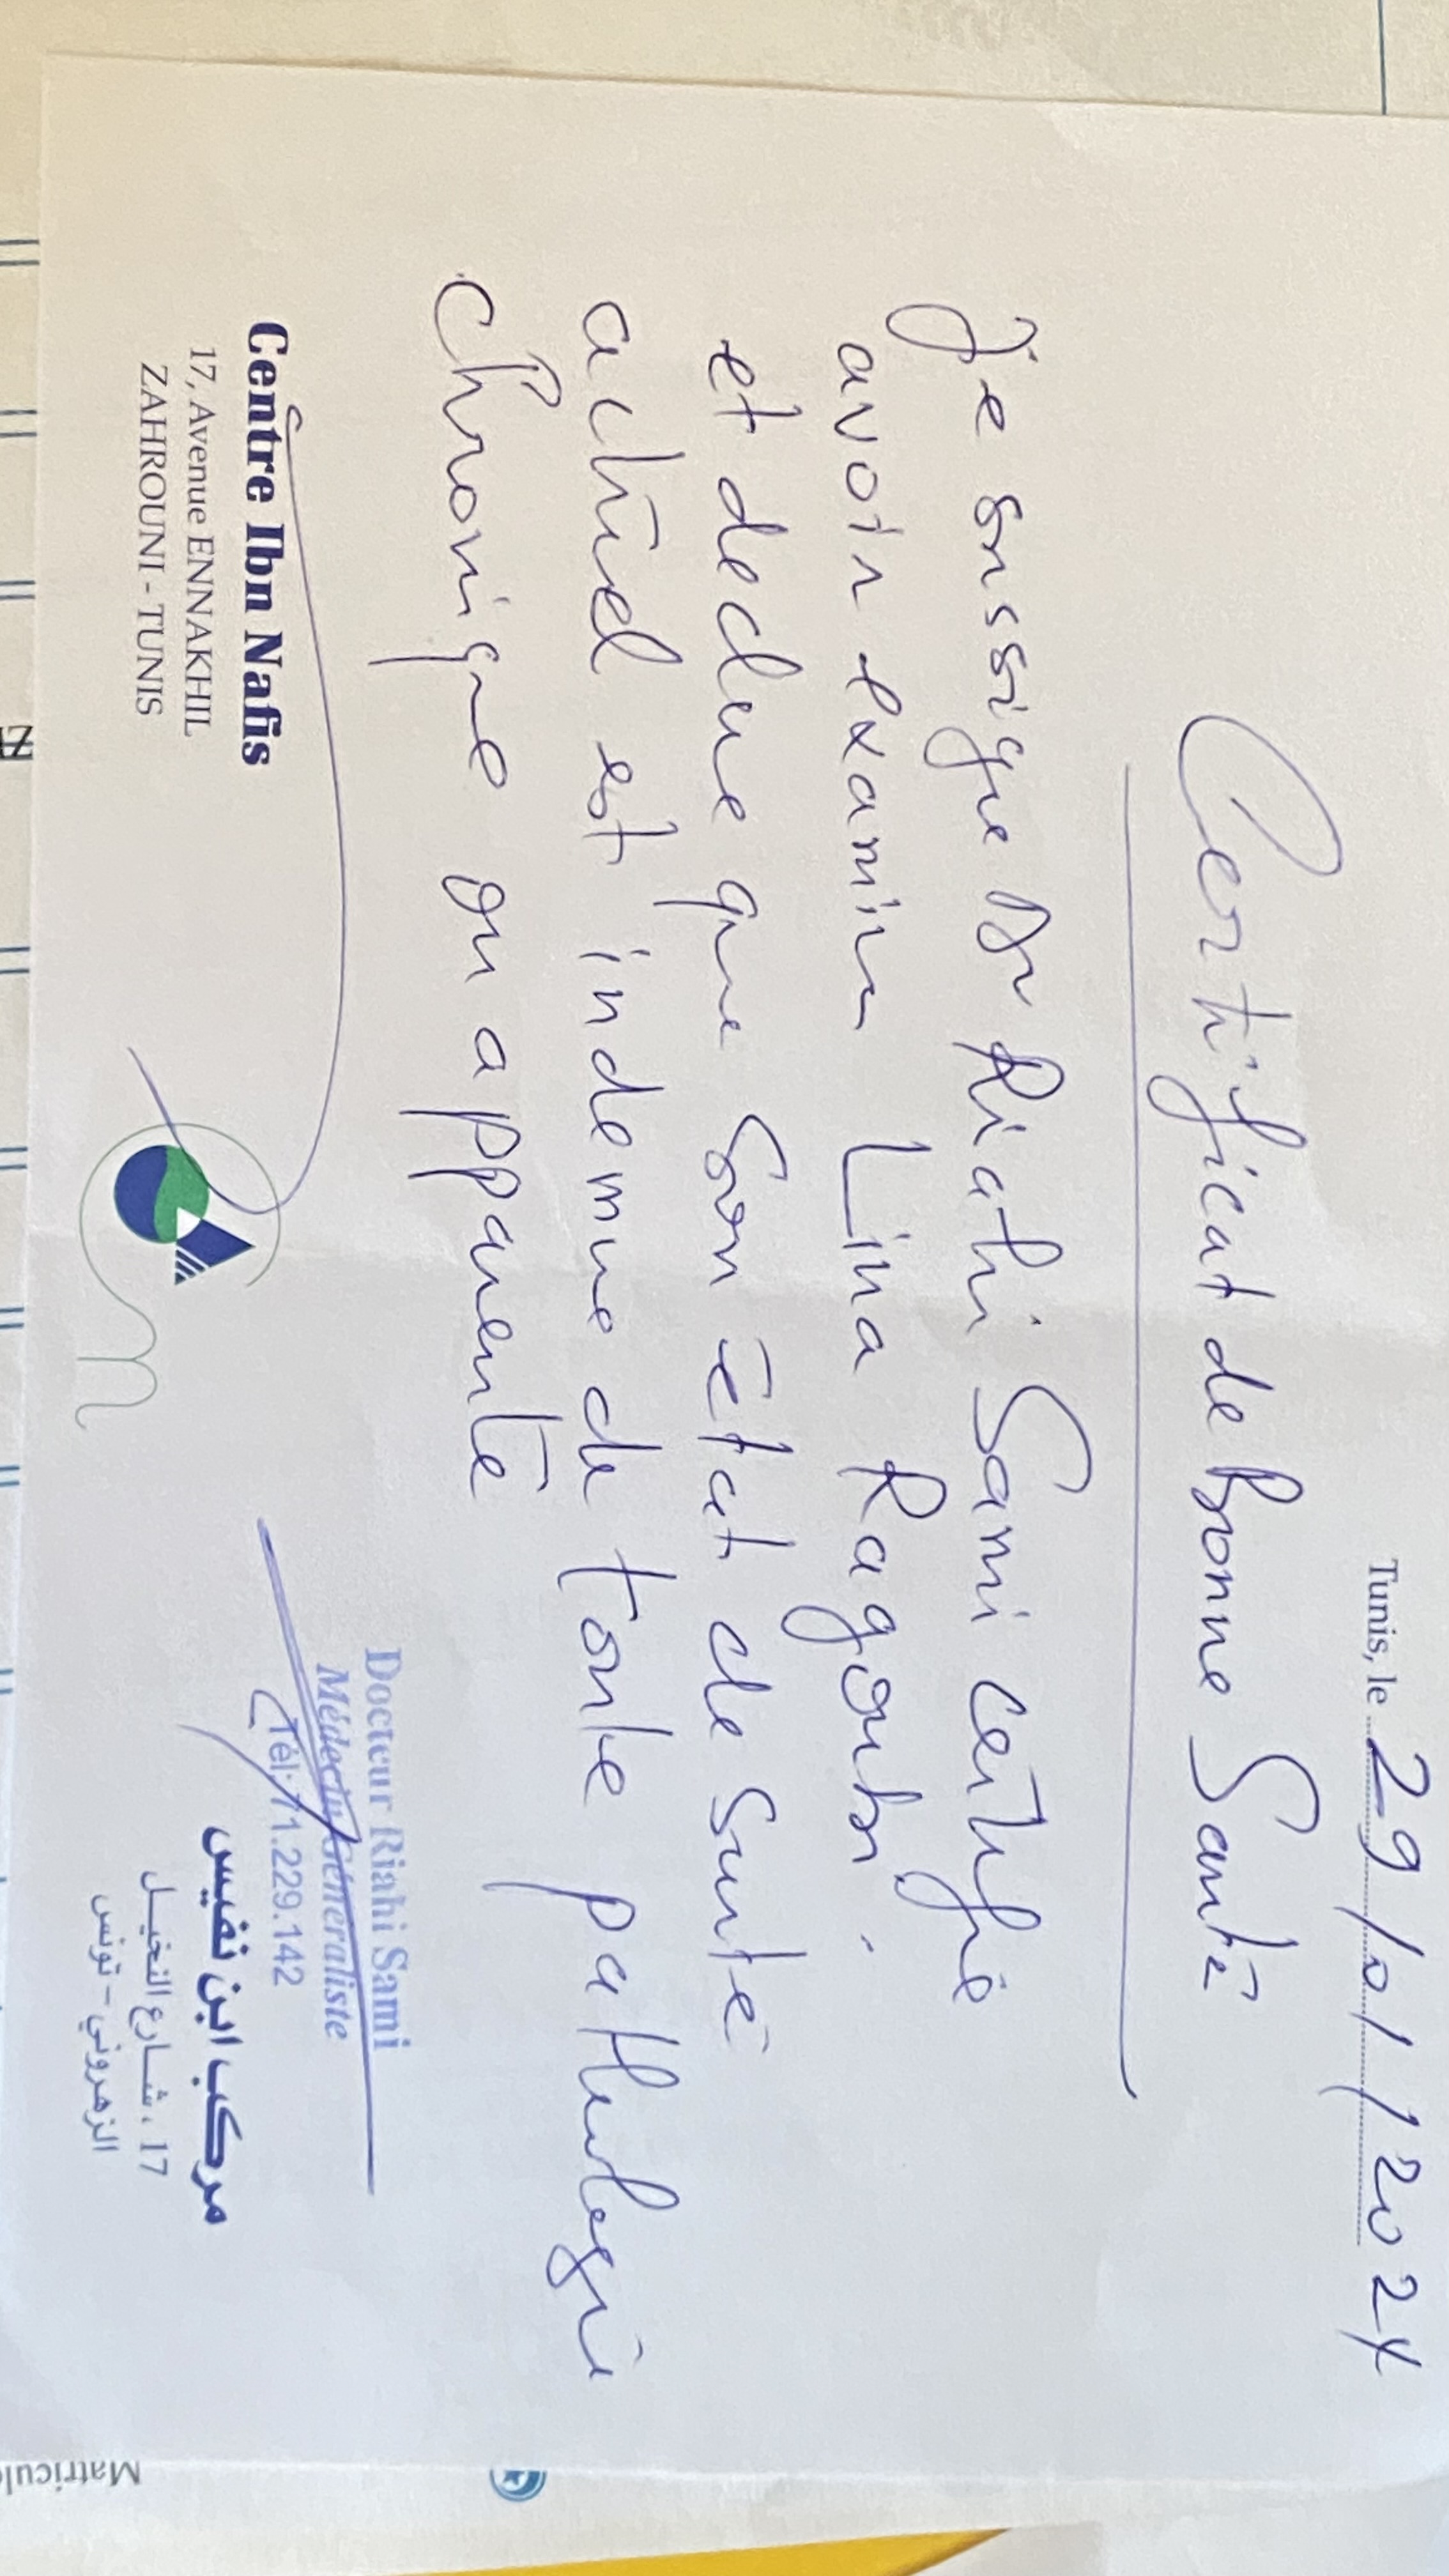 Tunis, le 29/01/2024
Certificat de Bonne Santé
Je soussigne Dr Riahi Sami certifie
avoir examiner Lina Ragoubi.
et declare que Son état de Santé
actuel est indemne de toute pathologie
chronique ou apparente
Docteur Riahi Sami
Médecin Généraliste
Tél: 71.229.142
Centre Ibn Nafis
17, Avenue ENNAKHIL
ZAHROUNI - TUNIS
مركب ابن نفيس
17، شارع النخيل
الزهروني - تونس
Matricule